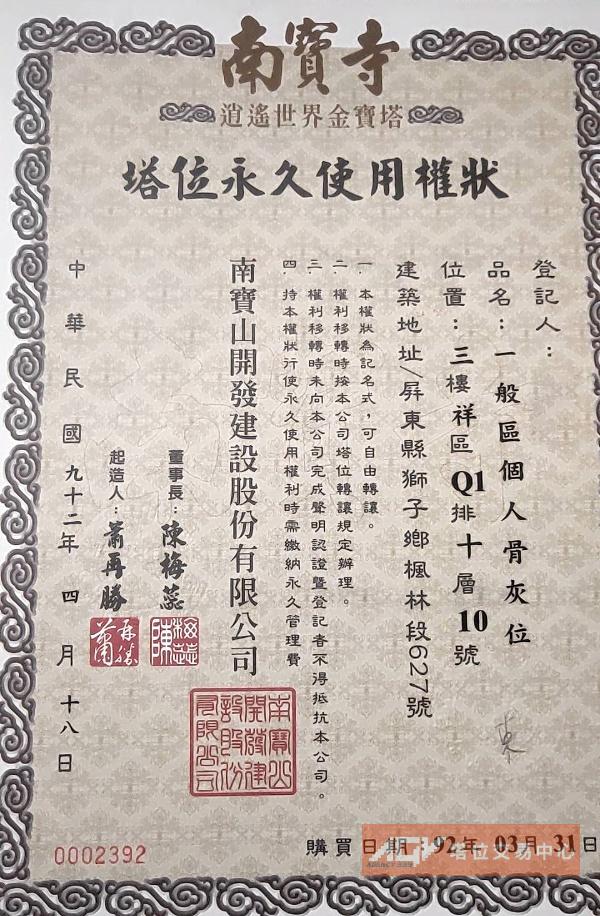 南寶寺
逍遙世界金寶塔
塔位永久使用權狀
登記人：
品名：一般區個人骨灰位
位置：三樓祥區Q1排十層10號
建築地址/屏東縣獅子鄉楓林段627號
一. 本權狀為記名式，可自由轉讓。
二. 權利移轉時按本公司塔位轉讓規定辦理。
三. 權利移轉時未向本公司完成聲明認證暨登記者不得抵抗本公司。
四. 持本權狀行使永久使用權利時需繳納永久管理費
南寶山開發建設股份有限公司
董事長：陳梅蕊
起造人：蕭再勝
中華民國九十二年四月十八日
南寶山開發建設股份有限公司
0002392
購買日期 92年 03月 31日
塔位交易中心